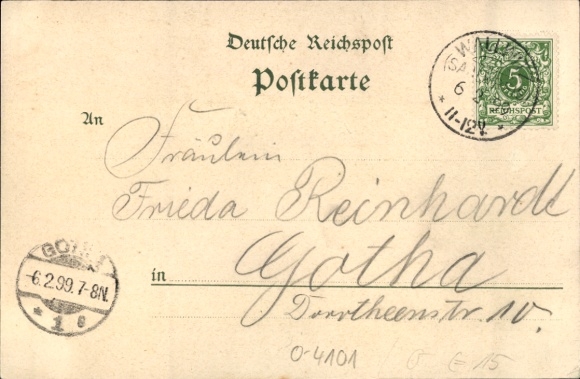 Deutsche Reichspost
Postkarte
5
REICHSPOST
6
11-12V.
An
Fräulein
Frieda Reinhardt
Gotha
in
Dorotheenstr. 10.
GOTHA
6.2.99. 7-8N.
* 1 *
O-4101
E 15